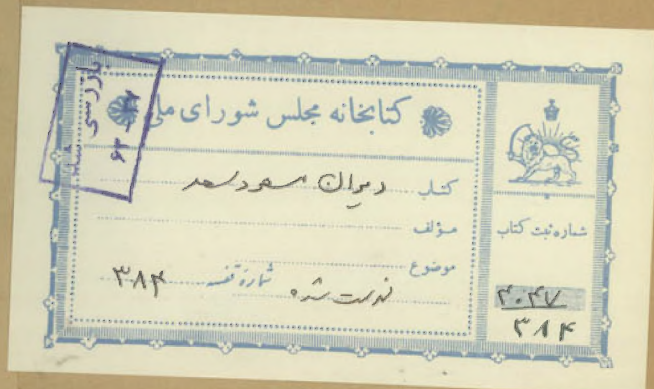 کتابخانه مجلس شورای ملی
کتاب دیوان مسعود سعد
مؤلف
موضوع
فهرست شده
شماره قفسه ۳۸۴
شماره ثبت کتاب
۴۰۴۷
۳۸۴
بازرسی شد